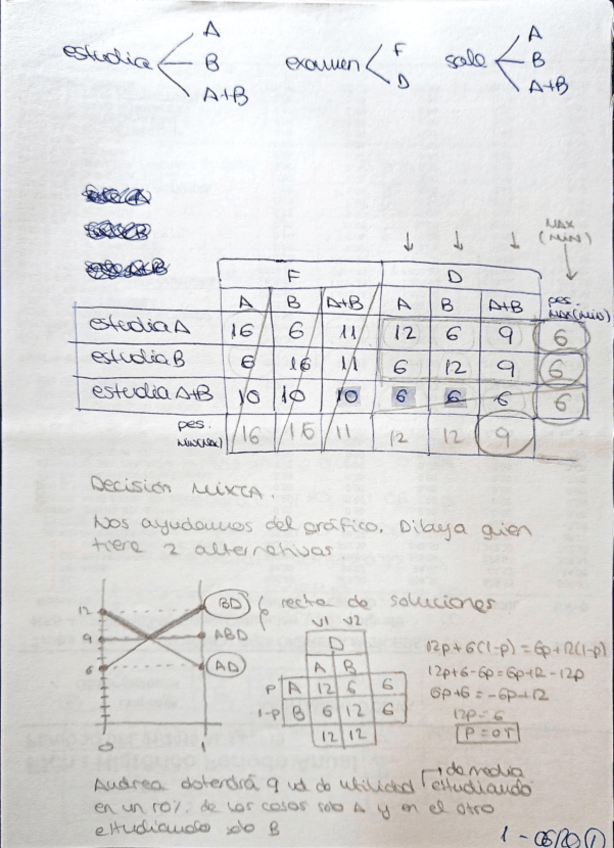 A
estudia B examen F sale A
D B
A+B A+B
MAX
(MIN)
F D
A B A+B A B A+B pes.
MAX(MIN)
estudia A 16 6 11 12 6 9 6
estudia B 6 16 11 6 12 9 6
estudia A+B 10 10 10 6 6 6 6
pes. 16 16 11 12 12 9
MIN(MAX)
Decisión MIXTA.
Nos ayudamos del gráfico. Dibuja quien
tiene 2 alternativas
12 BD recta de soluciones
9 ABD
6 AD
0 1
V1 V2
D
A B
P A 12 6 6
1-P B 6 12 6
12 12
12p+6(1-p) = 6p+12(1-p)
12p+6-6p=6p+12-12p
6p+6=-6p+12
12p=6
P=0'5
Andrea obtendrá 9 ud de utilidad de media estudiando
en un 50% de los casos solo A y en el otro
estudiando solo B